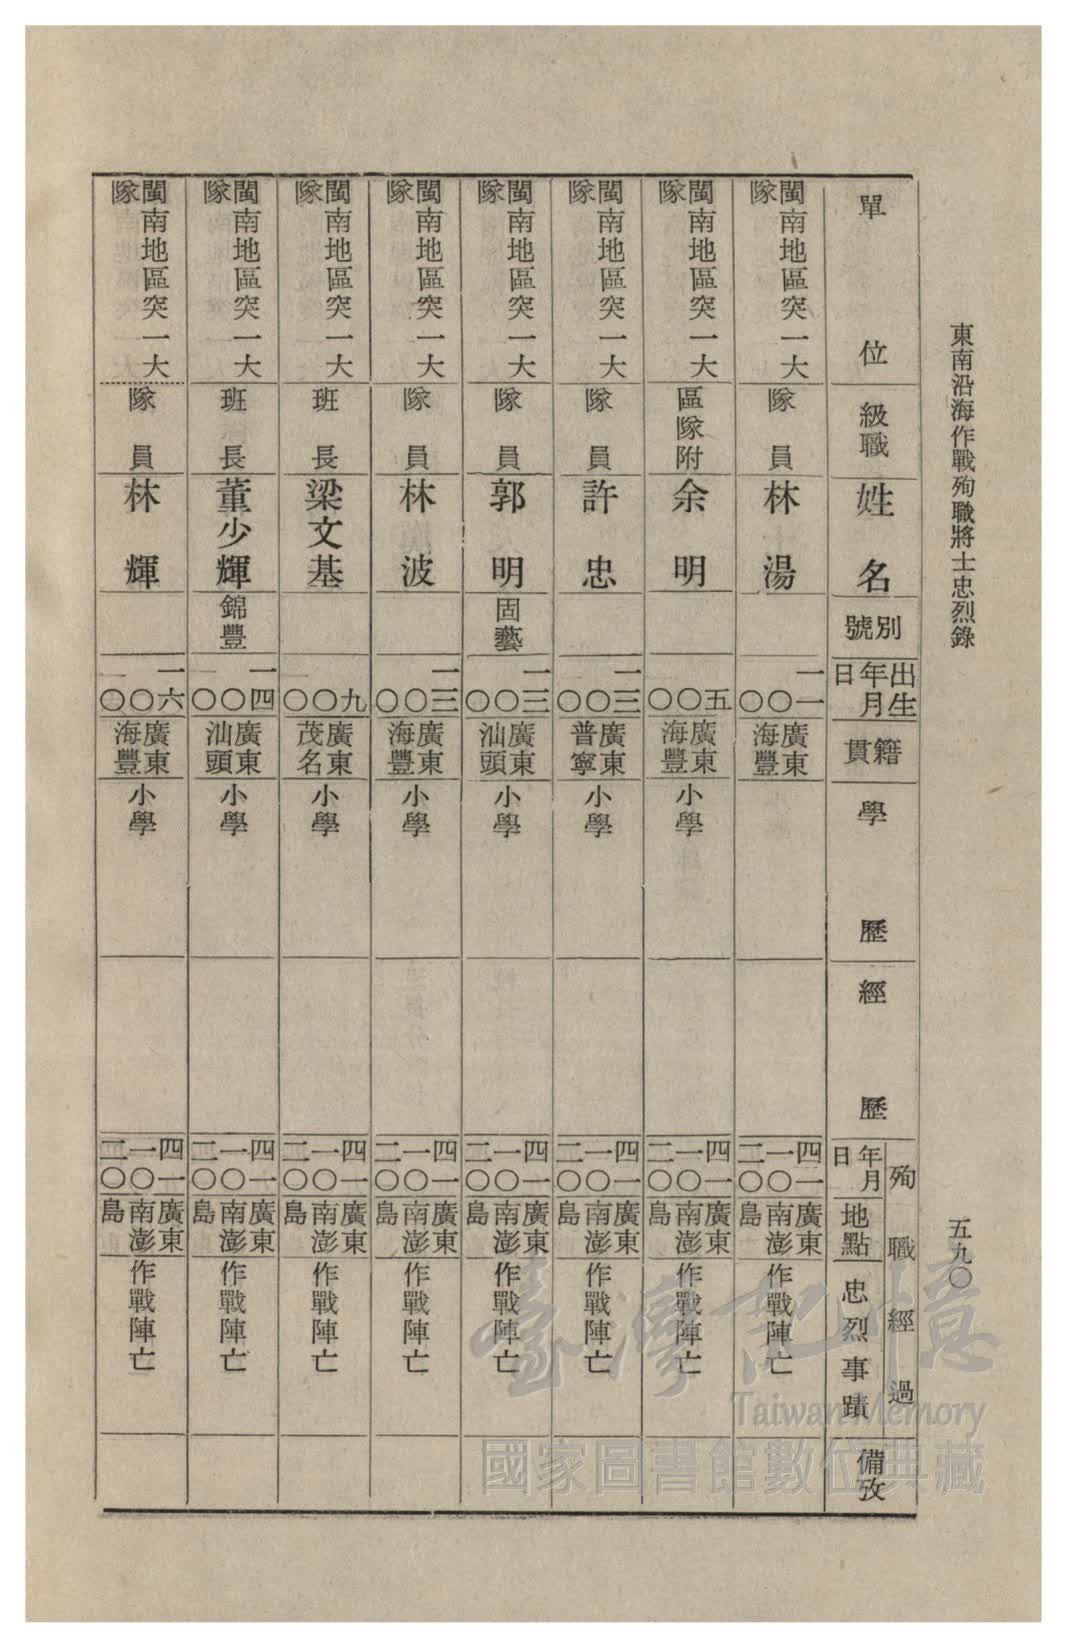 東南沿海作戰殉職將士忠烈錄
五九〇
單位
級職
姓名
別號
出生
年月
日
籍貫
學歷
經歷
殉職經過
年月
日
地點
忠烈事蹟
備攷
閩南地區突一大
隊
隊員
林湯
一一
〇
〇
廣東
海豐
四一
一〇
二〇
廣東
南澎
島
作戰陣亡
閩南地區突一大
隊
區隊附
余明
五
〇
〇
廣東
海豐
小學
四一
一〇
二〇
廣東
南澎
島
作戰陣亡
閩南地區突一大
隊
隊員
許忠
一三
〇
〇
廣東
普寧
小學
四一
一〇
二〇
廣東
南澎
島
作戰陣亡
閩南地區突一大
隊
隊員
郭明
固藝
一三
〇
〇
廣東
汕頭
小學
四一
一〇
二〇
廣東
南澎
島
作戰陣亡
閩南地區突一大
隊
隊員
林波
一三
〇
〇
廣東
海豐
小學
四一
一〇
二〇
廣東
南澎
島
作戰陣亡
閩南地區突一大
隊
班長
梁文基
九
〇
〇
廣東
茂名
小學
四一
一〇
二〇
廣東
南澎
島
作戰陣亡
閩南地區突一大
隊
班長
董少輝
錦豐
一四
〇
〇
廣東
汕頭
小學
四一
一〇
二〇
廣東
南澎
島
作戰陣亡
閩南地區突一大
隊
隊員
林輝
一六
〇
〇
廣東
海豐
小學
四一
一〇
二〇
廣東
南澎
島
作戰陣亡
臺灣記憶
Taiwan Memory
國家圖書館數位典藏